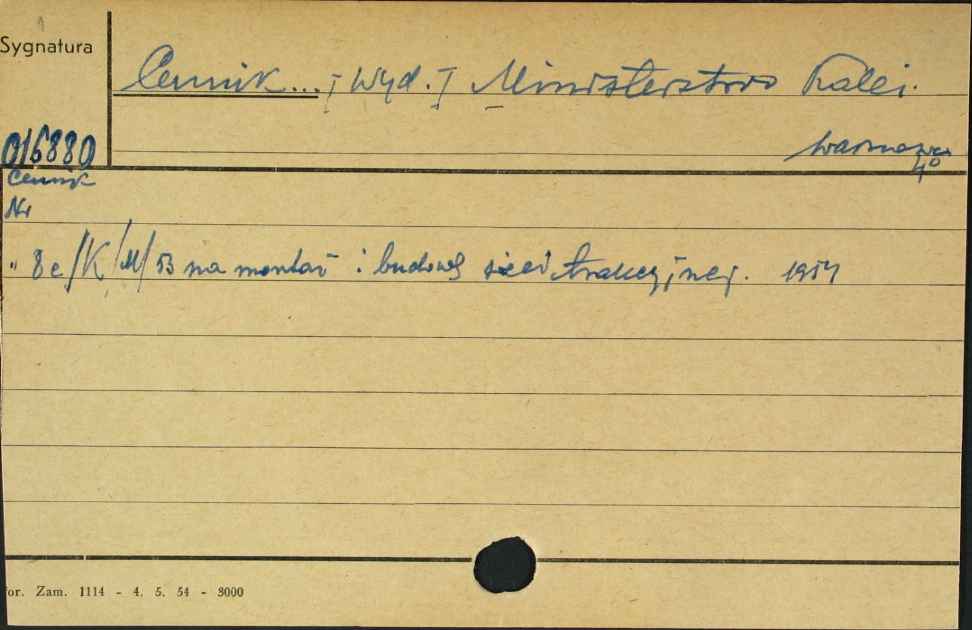 Sygnatura
Cennik... [Wyd.] Ministerstwo Kolei.
016880
Warszawa
4°
Cennik
Nr
" 8e/K/M/53 na montaż i budowę sieci trakcyjnej. 1954
or. Zam. 1114 - 4. 5. 54 - 3000